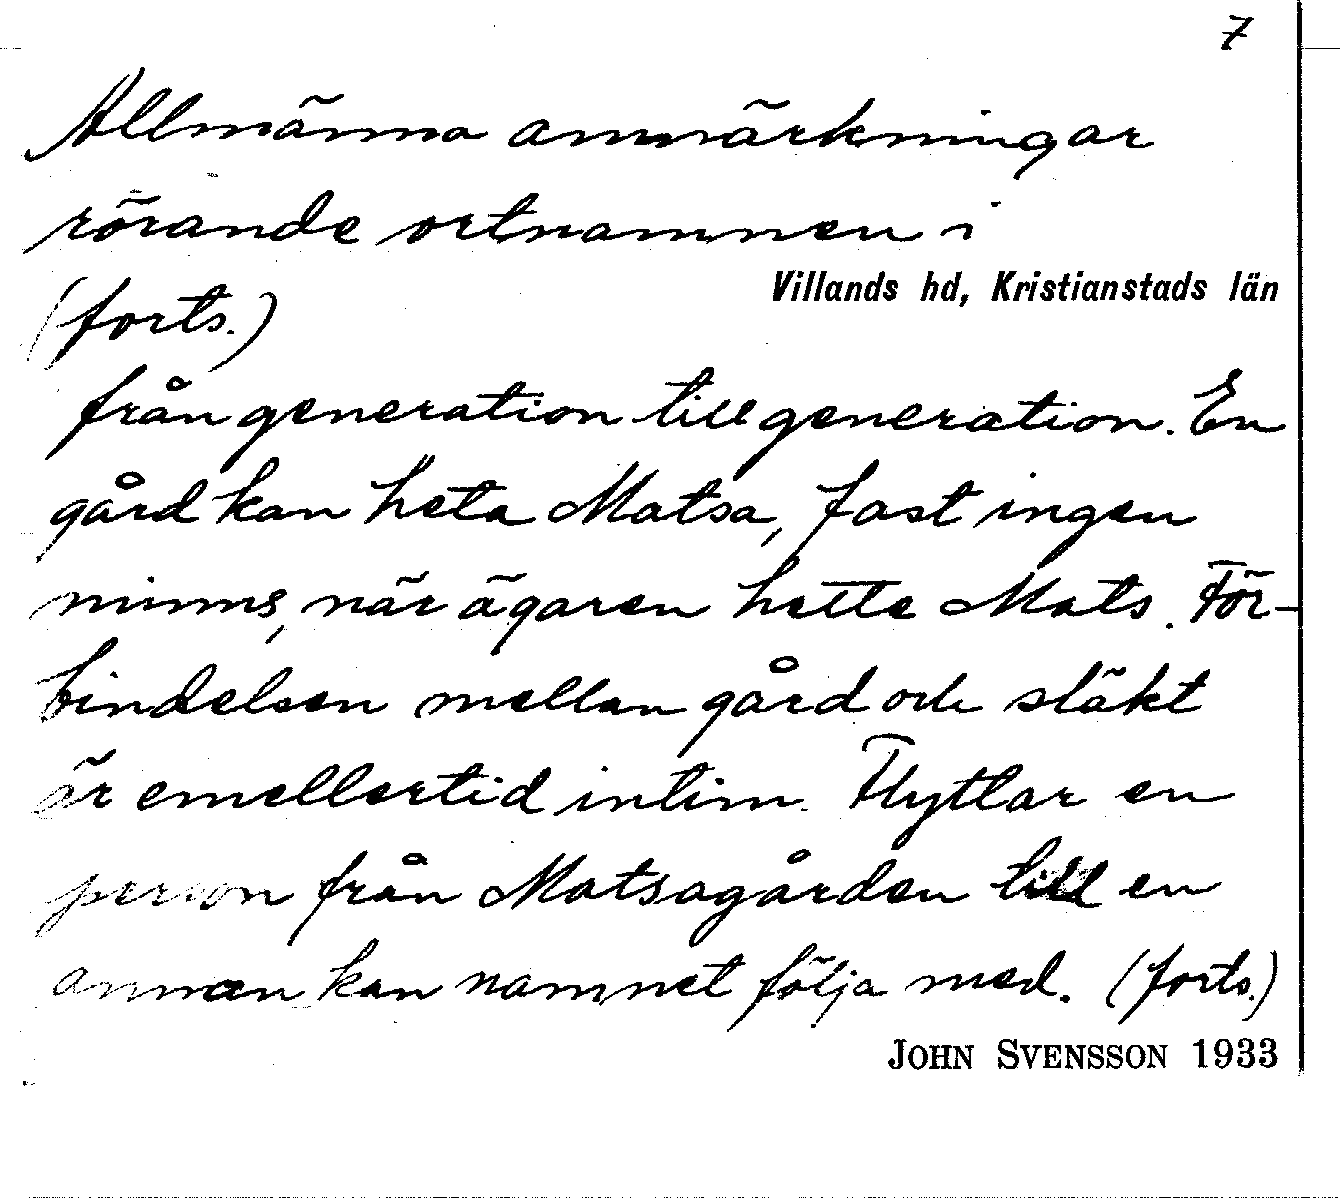 7
Allmänna anmärkningar
rörande ortnamnen i
Villands hd, Kristianstads län
(forts.)
från generation till generation. En
gård kan heta Matsa, fast ingen
minns, när ägaren hette Mats. För-
bindelsen mellan gård och släkt
är emellertid intim. Flyttar en
person från Matsagården till en
annan kan namnet följa med. (forts.)
JOHN SVENSSON 1933